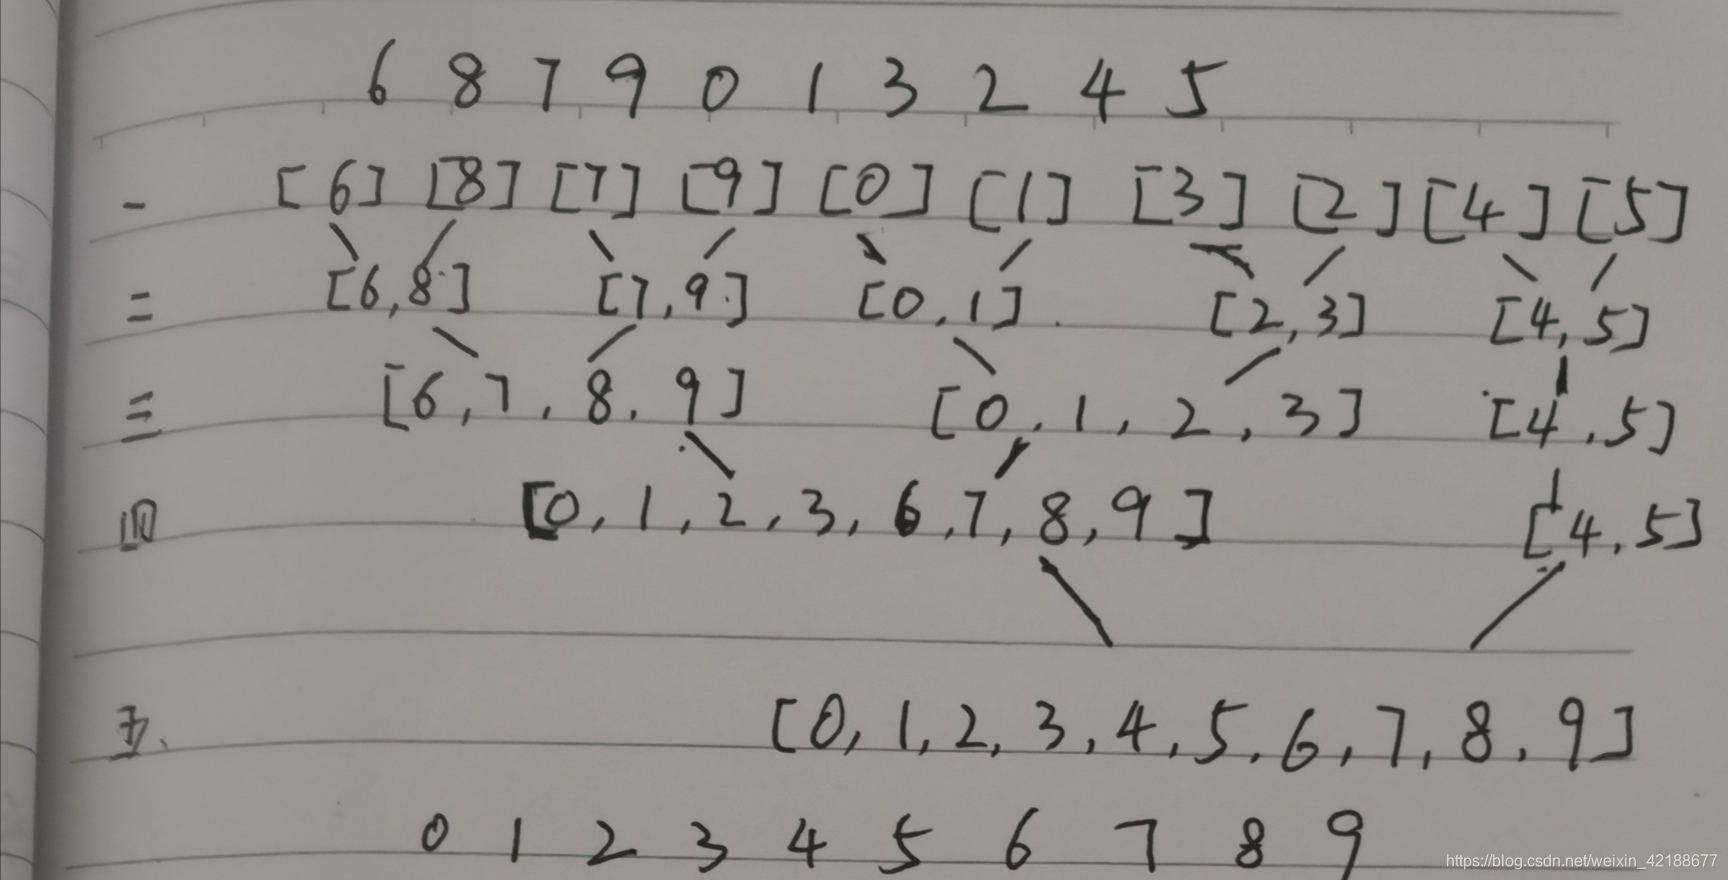 6 8 7 9 0 1 3 2 4 5
一 [6] [8] [7] [9] [0] [1] [3] [2] [4] [5]
二 [6,8] [7,9] [0,1] [2,3] [4,5]
三 [6,7,8,9] [0,1,2,3] [4,5]
四 [0,1,2,3,6,7,8,9] [4,5]
五. [0,1,2,3,4,5,6,7,8,9]
0 1 2 3 4 5 6 7 8 9
https://blog.csdn.net/weixin_42188677